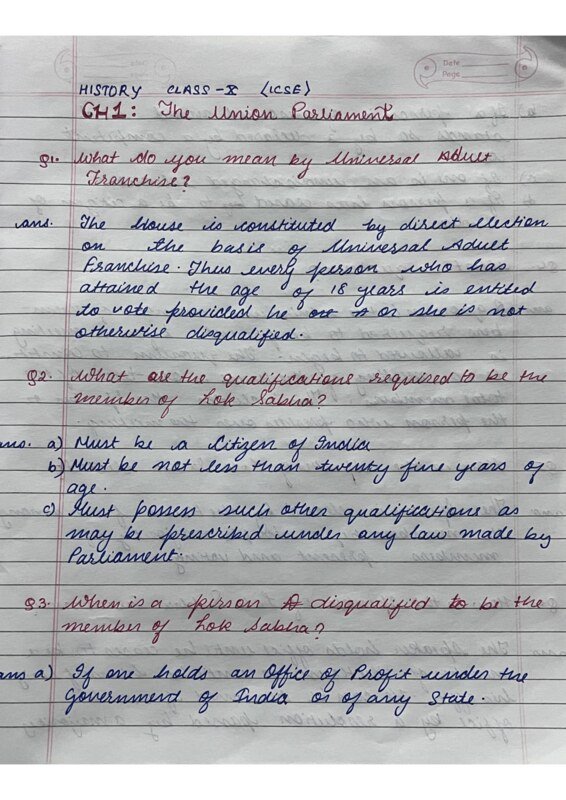 Date
Page
HISTORY CLASS-X (ICSE)
CH1: The Union Parliament
Q1. What do you mean by Universal Adult
Franchise?
ans. The house is constituted by direct election
on the basis of Universal Adult
Franchise. Thus every person who has
attained the age of 18 years is entitled
to vote provided he or she is not
otherwise disqualified.
Q2. What are the qualifications required to be the
member of Lok Sabha?
ans. a) Must be a Citizen of India
b) Must be not less than twenty five years of
age.
c) Must possess such other qualifications as
may be prescribed under any law made by
Parliament.
Q3. When is a person disqualified to be the
member of Lok Sabha?
ans a) If one holds an Office of Profit under the
Government of India or of any State.